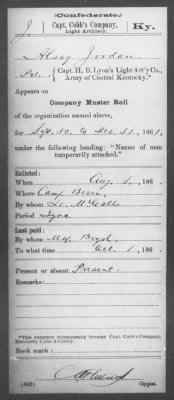 (Confederate.)
J Capt. Cobb's Company, Light Artillery. Ky.
Alsay Jordan
Pvt., Capt. H. B. Lyon's Light Art'y Co., Army of Central Kentucky.*
Appears on
Company Muster Roll
of the organization named above,
for Sept. 10 to Dec. 31, 1861,
under the following heading: "Names of men temporarily attached."
Enlisted:
When Aug 1, 186 .
Where Camp
By whom
Period 1 yr
Last paid:
By whom Maj. Boyd
To what time Dec 1, 186 .
Present or absent Present.
Remarks:
*This company subsequently became Capt. Cobb's Company, Kentucky Light Artillery.
Book mark:
(642) Copyist.